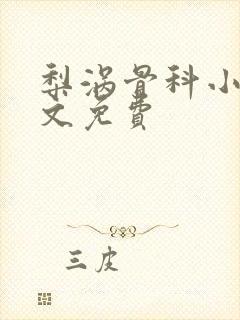 梨涡骨科小
文免費
三皮